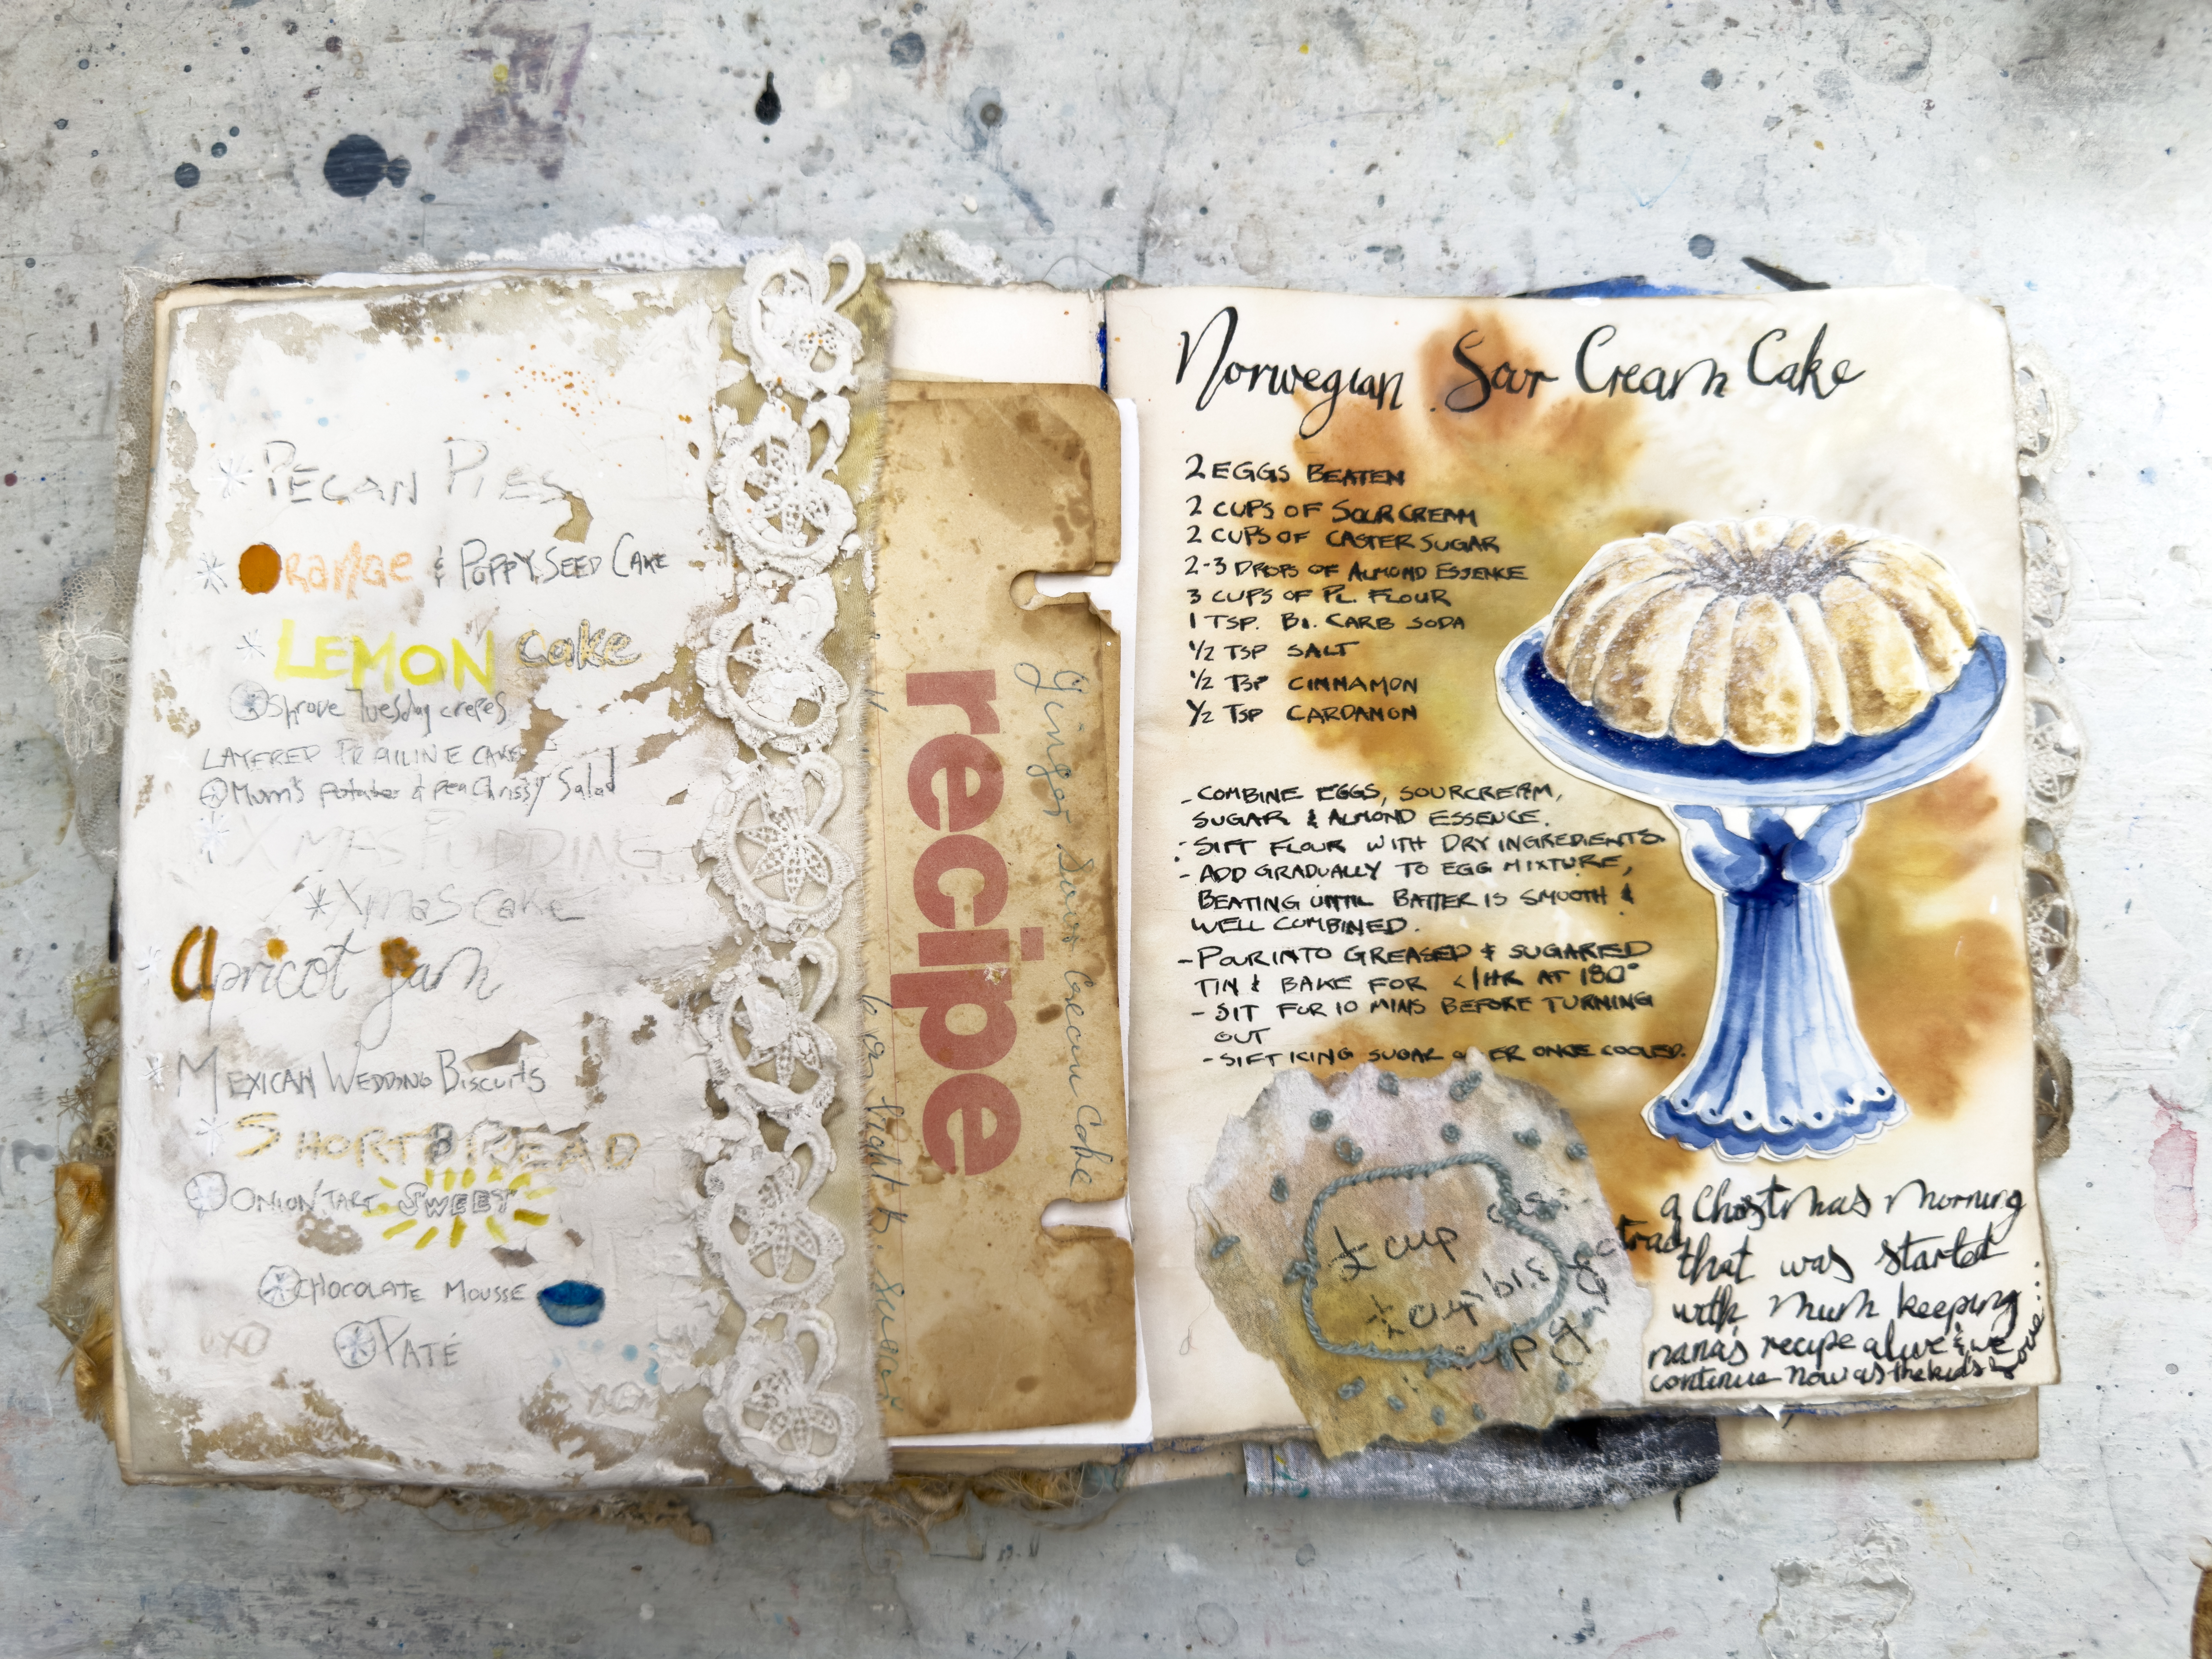 * PECAN PIES
* ORANGE & POPPY SEED CAKE
* LEMON cake
* Shrove Tuesday crepes
LAYERED PRALINE CAKE
* Mum's potato & pea Chrissy Salad
* XMAS PUDDING
* Xmas cake
* Apricot Jam
* MEXICAN WEDDING BISCUITS
* SHORTBREAD
* ONION TART SWEET
* CHOCOLATE MOUSSE
* PATÉ
recipe
Ginger Sour Cream Cake
Norwegian Sour Cream Cake
2 EGGS BEATEN
2 CUPS OF SOUR CREAM
2 CUPS OF CASTER SUGAR
2-3 DROPS OF ALMOND ESSENCE
3 CUPS OF PL. FLOUR
1 TSP. BI. CARB SODA
1/2 TSP SALT
1/2 TSP CINNAMON
1/2 TSP CARDAMON
- COMBINE EGGS, SOURCREAM,
SUGAR & ALMOND ESSENCE.
- SIFT FLOUR WITH DRY INGREDIENTS.
- ADD GRADUALLY TO EGG MIXTURE,
BEATING UNTIL BATTER IS SMOOTH &
WELL COMBINED.
- POUR INTO GREASED & SUGARED
TIN & BAKE FOR <1HR AT 180°
- SIT FOR 10 MINS BEFORE TURNING
OUT
- SIFT ICING SUGAR OVER ONCE COOLED.
cup
a Christmas morning
that was started
with mum keeping
nana's recipe alive & we
continue now as the kids